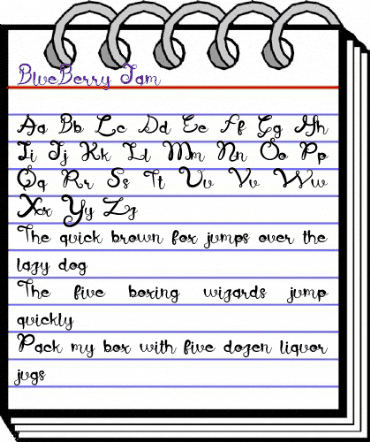 BlueBerry Jam
Aa Bb Cc Dd Ee Ff Gg Hh
Ii Jj Kk Ll Mm Nn Oo Pp
Qq Rr Ss Tt Uu Vv Ww
Xx Yy Zz
The quick brown fox jumps over the
lazy dog
The five boxing wizards jump
quickly
Pack my box with five dozen liquor
jugs